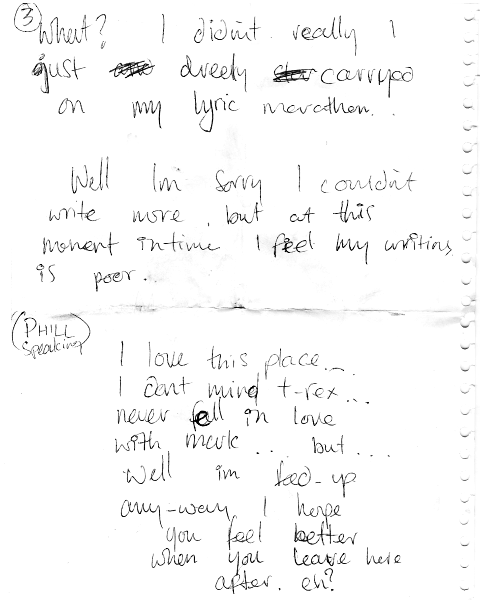 ③
What? I didn't really I
just dreely carryed
on my lyric marathon..
Well Im sorry I couldn't
write more, but at this
moment in time I feel my writing
is poor...
(PHILL
Speaking)
I love this place....
I dont mind t-rex...
never fell in love
with mark... but...
Well im fed-up
any-way I hope
you feel better
when you leave here
after. eh?